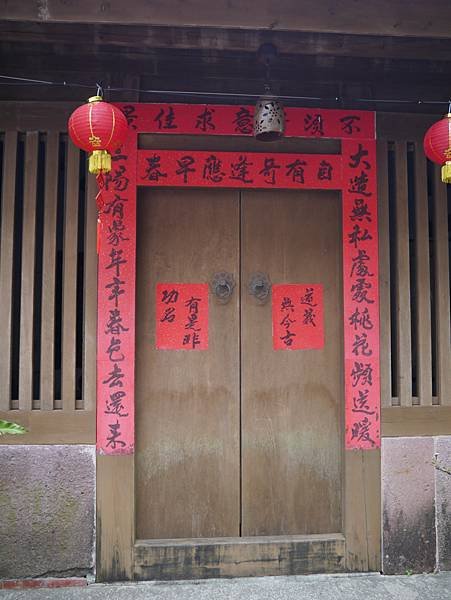 不須意求佳景
自有奇逢應早春
大造無私處處桃花頻送暖
三陽有象年年春色去還來
道義
無今古
功名
有是非